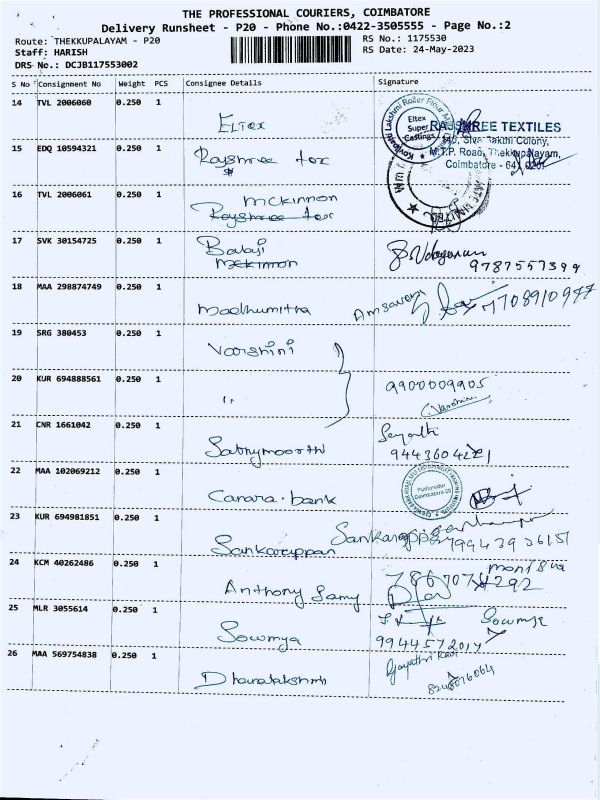 THE PROFESSIONAL COURIERS, COIMBATORE
Delivery Runsheet - P20 - Phone No.:0422-3505555 - Page No.:2
Route: THEKKUPALAYAM - P20
RS No.: 1175530
Staff: HARISH
RS Date: 24-May-2023
DRS No.: DCJB117553002
S No Consignment No Weight PCS Consignee Details Signature
14 TVL 2006060 0.250 1 Eltex
Eltex Super Castings
RAJSHREE TEXTILES
15 EDQ 10594321 0.250 1 Rajshree tex
Colony,
M.T.P. Road, Thekkupalayam,
Coimbatore - 641
16 TVL 2006061 0.250 1 Mckinnon
Rajshree tex
17 SVK 30154725 0.250 1 Balaji
Mckinnon
9787557399
18 MAA 298874749 0.250 1 Madhumitha Amsaveni 7708910977
19 SRG 380453 0.250 1 Varshini
20 KUR 694888561 0.250 1 "
9900009905
21 CNR 1661042 0.250 1 Sathymoorth
22 MAA 102069212 0.250 1 Canara bank
23 KUR 694981851 0.250 1 Sankarappan
24 KCM 40262486 0.250 1 Anthony Samy
25 MLR 3055614 0.250 1 Sowmya Sowmya
26 MAA 569754838 0.250 1 Dhanalakshmi